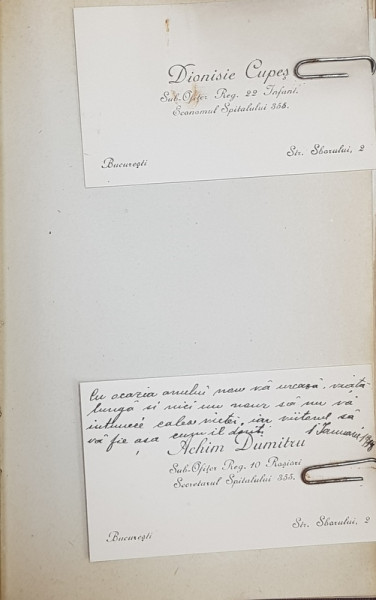 Dionisie Cupeș
Sub-Ofițer Reg. 22 Infant.
Economul Spitalului 358.
București
Str. Sborului, 2
Cu ocazia anului nou vă urează, viață
lungă și nici un nour să nu vă
întunece calea vieței, iar viitorul să
vă fie așa cum îl doriți.
1 Ianuarie
Achim Dumitru
Sub-Ofițer Reg. 10 Roșiori
Secretarul Spitalului 355.
București
Str. Sborului, 2